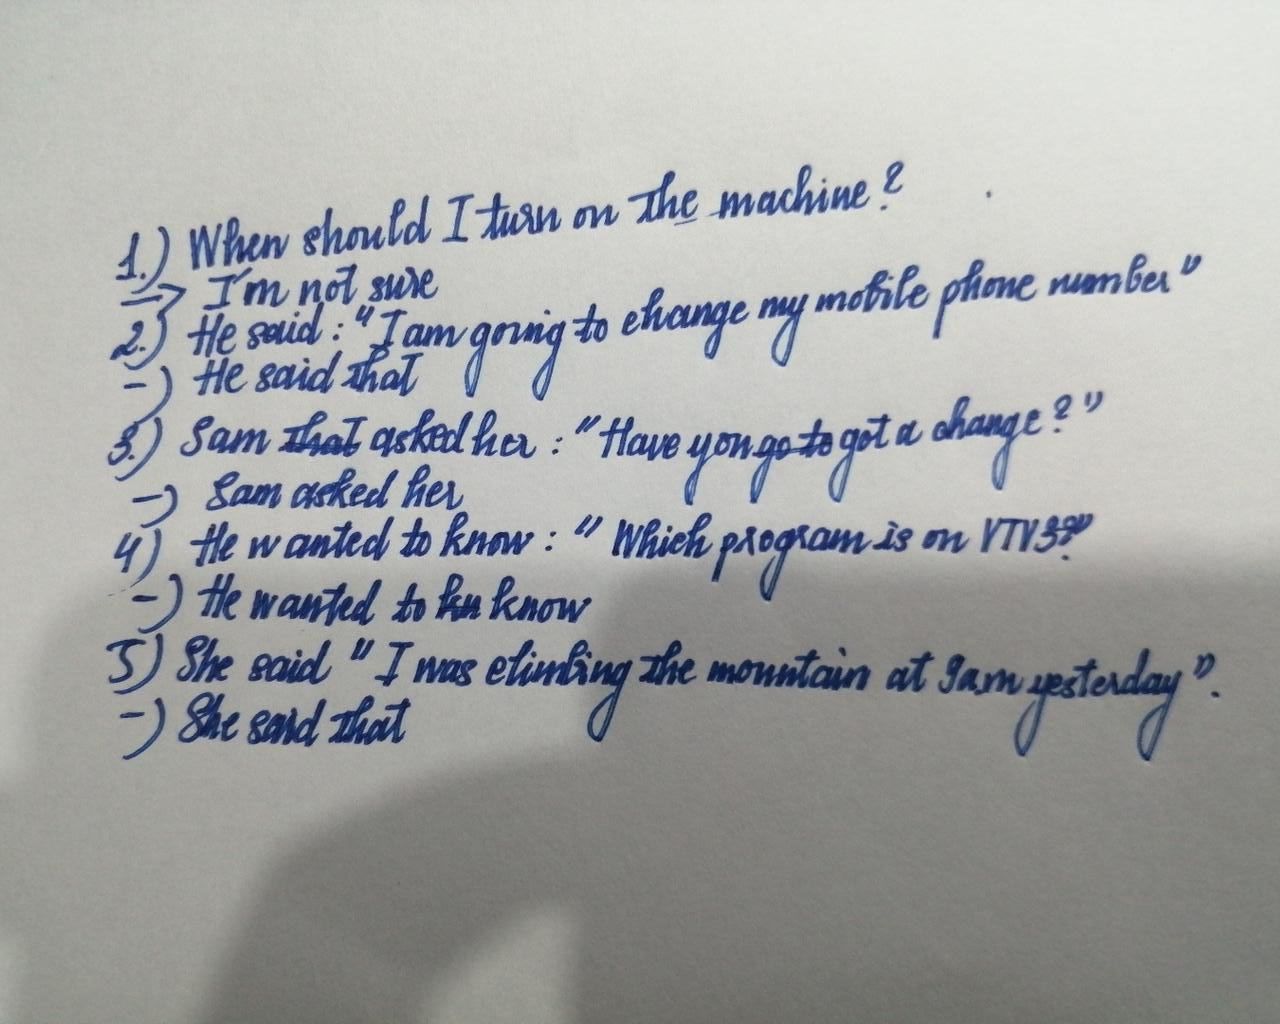 1.) When should I turn on the machine?
=> I'm not sure
2.) He said: "I am going to change my mobile phone number"
-) He said that
3.) Sam that asked her: "Have you go to got a change?"
-) Sam asked her
4) He wanted to know: "Which program is on VTV3?"
-) He wanted to kn know
5) She said "I was climbing the mountain at 9am yesterday".
-) She said that